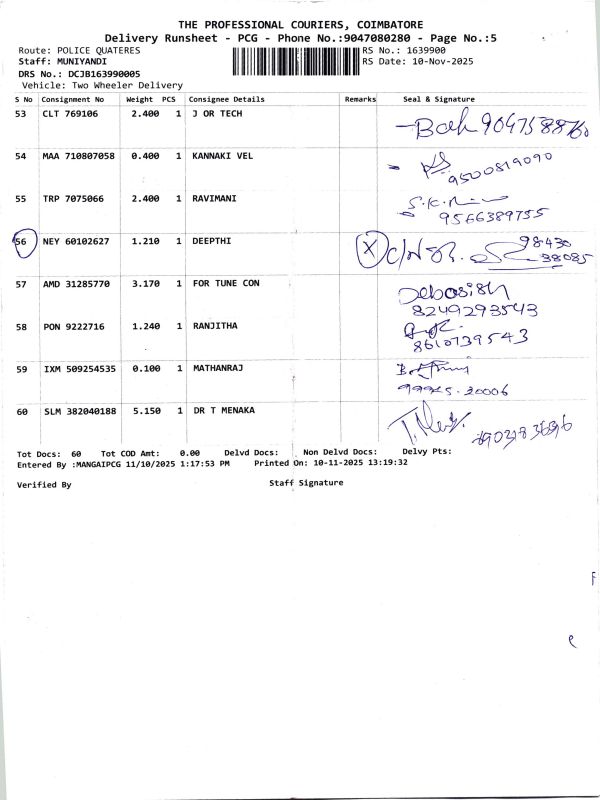 THE PROFESSIONAL COURIERS, COIMBATORE
Delivery Runsheet - PCG - Phone No.:9047080280 - Page No.:5
Route: POLICE QUATERES RS No.: 1639900
Staff: MUNIYANDI RS Date: 10-Nov-2025
DRS No.: DCJB163990005
Vehicle: Two Wheeler Delivery
S No Consignment No Weight PCS Consignee Details Remarks Seal & Signature
53 CLT 769106 2.400 1 J OR TECH
54 MAA 710807058 0.400 1 KANNAKI VEL
9500819090
55 TRP 7075066 2.400 1 RAVIMANI
9566389755
56 NEY 60102627 1.210 1 DEEPTHI X 98430
38085
57 AMD 31285770 3.170 1 FOR TUNE CON Debasish
8249293543
58 PON 9222716 1.240 1 RANJITHA
8610739543
59 IXM 509254535 0.100 1 MATHANRAJ
99945.20006
60 SLM 382040188 5.150 1 DR T MENAKA
Tot Docs: 60 Tot COD Amt: 0.00 Delvd Docs: Non Delvd Docs: Delvy Pts:
Entered By :MANGAIPCG 11/10/2025 1:17:53 PM Printed On: 10-11-2025 13:19:32
Verified By Staff Signature